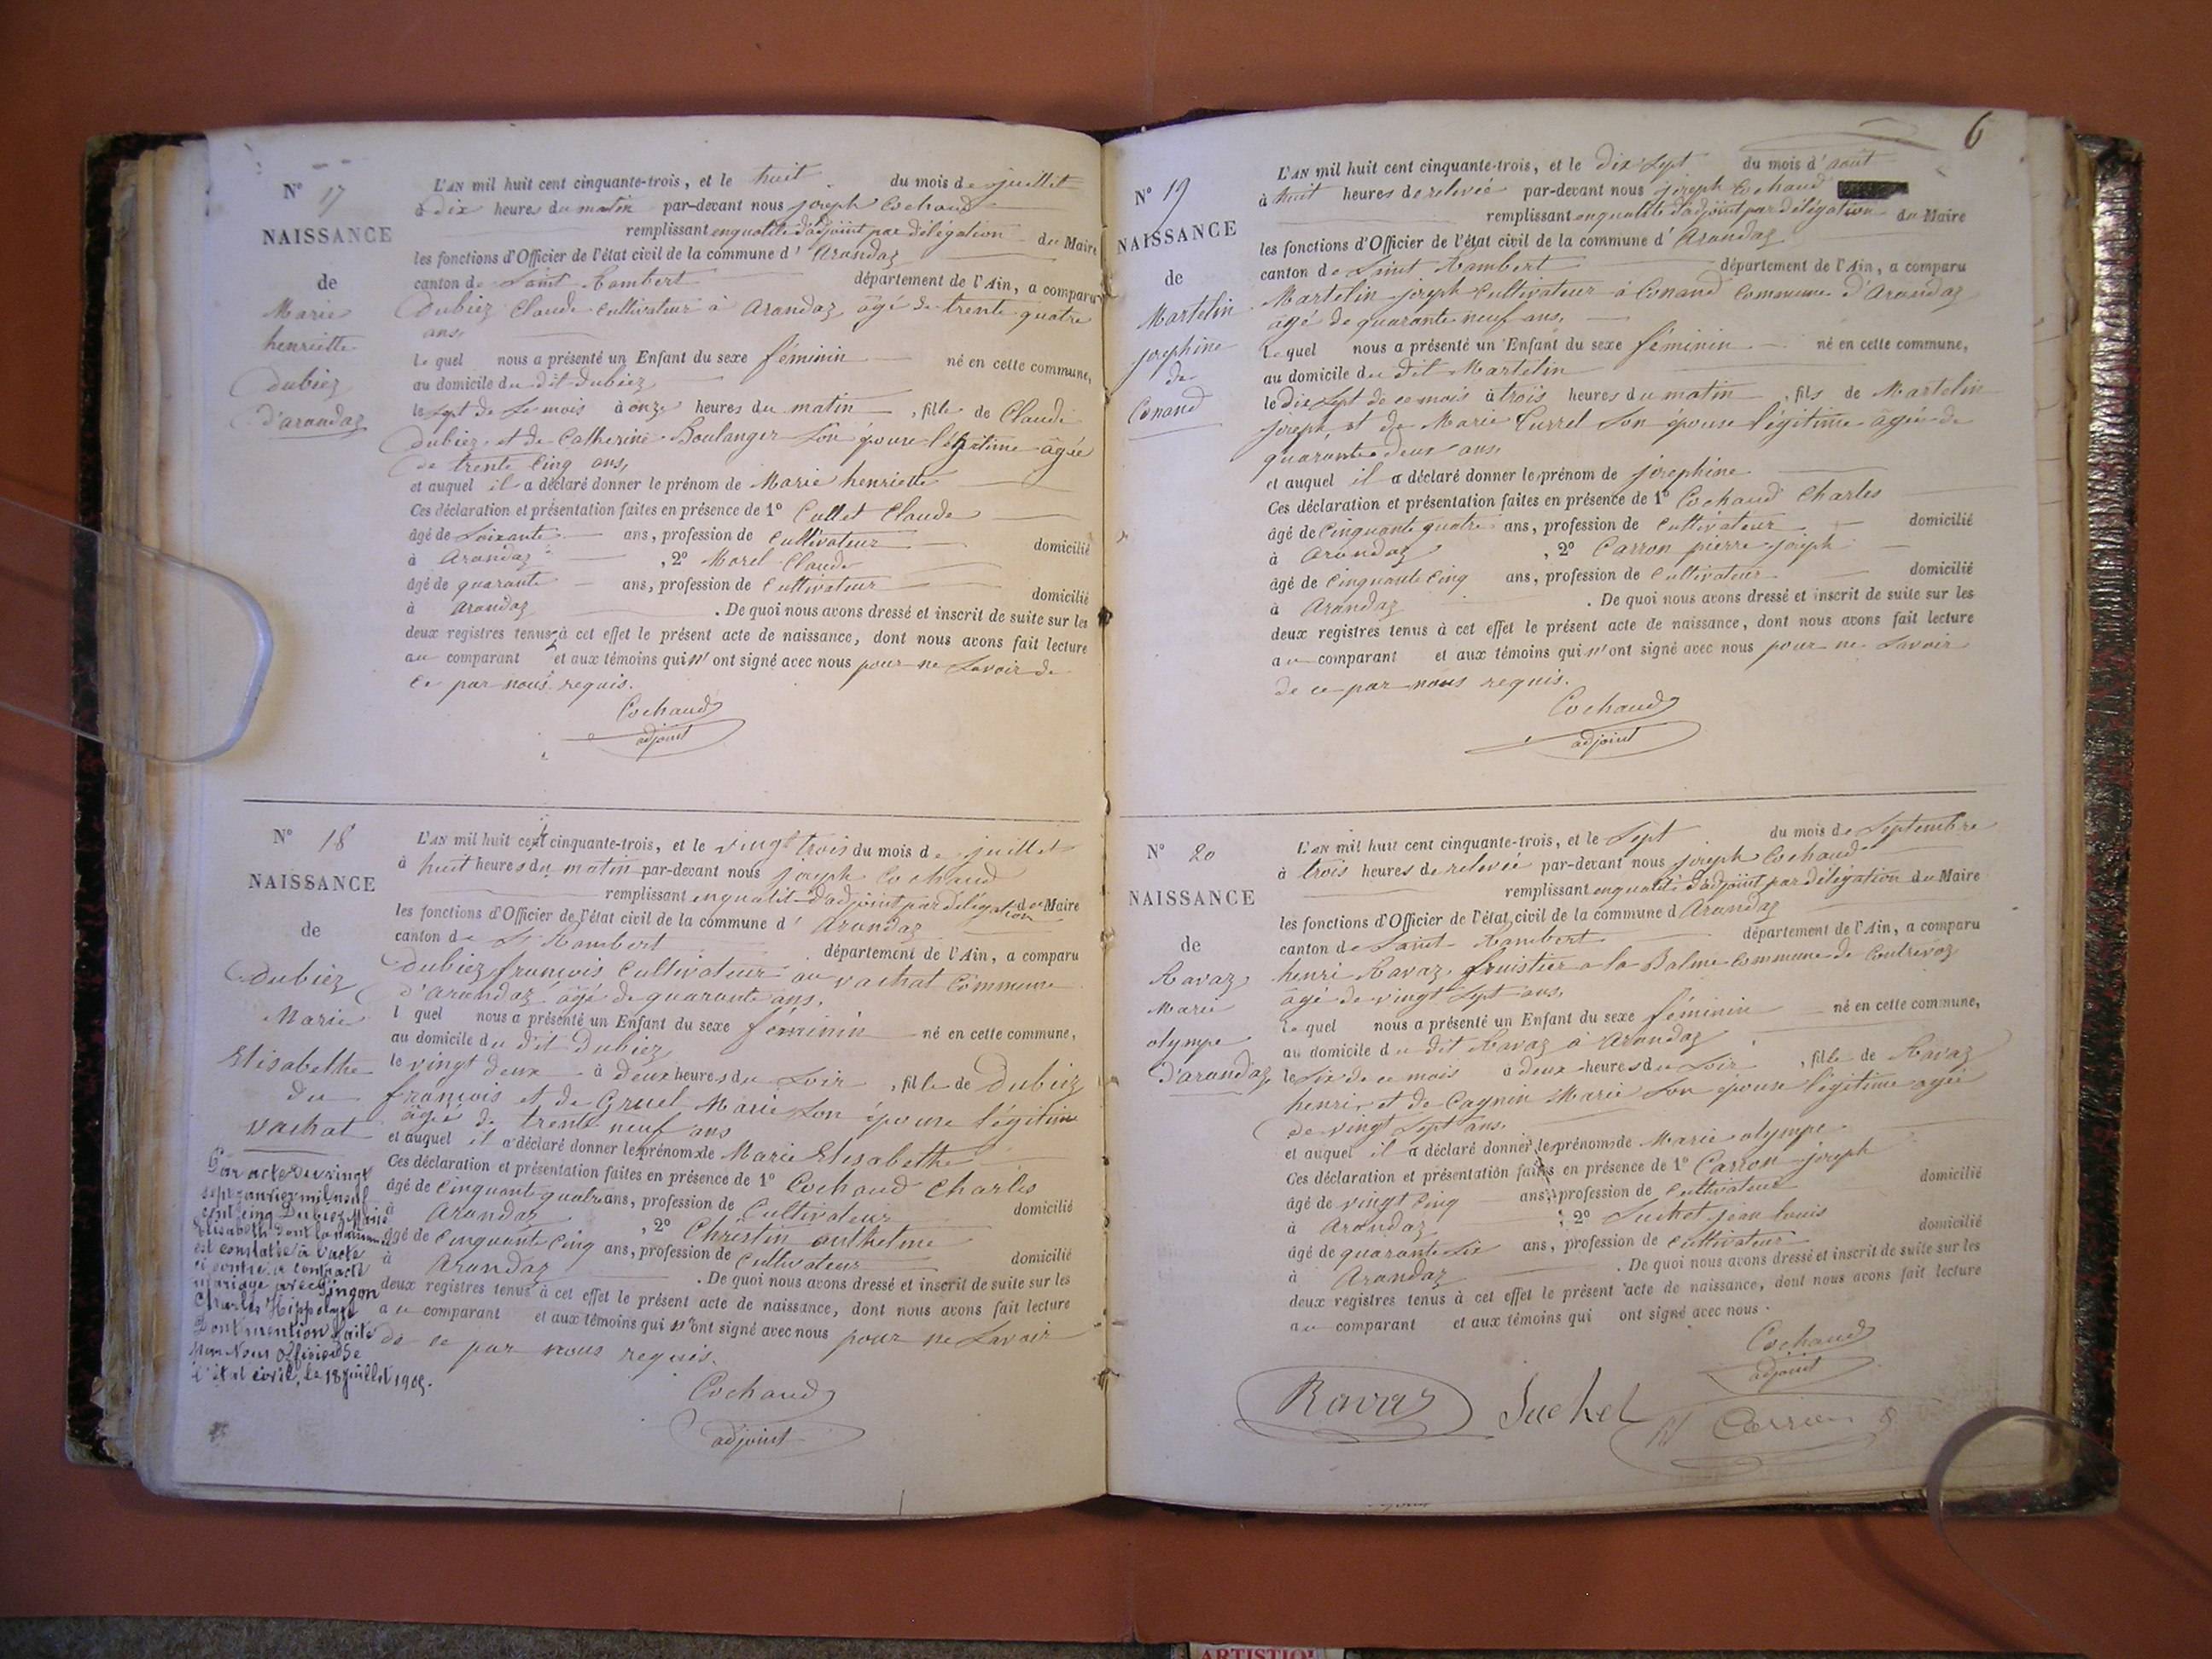 N° 17
NAISSANCE
de
Marie
henriette
Dubiez
d'arandaz
L'AN mil huit cent cinquante-trois, et le huit du mois de juillet
à dix heures du matin par-devant nous joseph Cochaud
remplissant en qualité d'adjoint par délégation du Maire
les fonctions d'Officier de l'état civil de la commune d' Arandaz
canton de Saint Rambert département de l'Ain, a comparu
Dubiez Claude Cultivateur à Arandaz âgé de trente quatre
ans
le quel nous a présenté un Enfant du sexe féminin né en cette commune,
au domicile du dit Dubiez
le sept de ce mois à onze heures du matin , fille de Claude
Dubiez et de Catherine Boulanger son épouse légitime âgée
de trente cinq ans,
et auquel il a déclaré donner le prénom de Marie henriette
Ces déclaration et présentation faites en présence de 1° Cullet Claude
âgé de soixante ans, profession de Cultivateur domicilié
à Arandaz , 2° Morel Claude
âgé de quarante ans, profession de Cultivateur domicilié
à Arandaz . De quoi nous avons dressé et inscrit de suite sur les
deux registres tenus à cet effet le présent acte de naissance, dont nous avons fait lecture
au comparant et aux témoins qui n'ont signé avec nous pour ne savoir de
ce par nous requis.
Cochaud
adjoint
N° 18
NAISSANCE
de
Dubiez
Marie
Elisabethe
du
vachat
Par acte du vingt
sept janvier mil neuf
cent cinq Dubiez Marie
Elisabeth dont la naissance
est constatée à l'acte
ci contre a contracté
mariage avec Pingon
Charles Hippolyte
Dont mention faite
par Nous Officier de
l'état civil, le 18 juillet 1905.
L'AN mil huit cent cinquante-trois, et le vingt trois du mois de juillet
à huit heures du matin par-devant nous joseph Cochaud
remplissant en qualité d'adjoint par délégation du Maire
les fonctions d'Officier de l'état civil de la commune d' Arandaz
canton de St Rambert département de l'Ain, a comparu
Dubiez françois Cultivateur au vachat Commune
d'Arandaz âgé de quarante ans.
l quel nous a présenté un Enfant du sexe féminin né en cette commune,
au domicile du dit Dubiez
le vingt deux à deux heures du soir , fille de Dubiez
françois et de Gruel Marie son épouse légitime
âgée de trente neuf ans
et auquel il a déclaré donner le prénom de Marie Elisabethe
Ces déclaration et présentation faites en présence de 1° Cochaud Charles
âgé de Cinquante quatre ans, profession de Cultivateur domicilié
à Arandaz , 2° Christin anthelme
âgé de Cinquante Cinq ans, profession de Cultivateur domicilié
à Arandaz . De quoi nous avons dressé et inscrit de suite sur les
deux registres tenus à cet effet le présent acte de naissance, dont nous avons fait lecture
au comparant et aux témoins qui n'ont signé avec nous pour ne savoir
de ce par nous requis.
Cochaud
adjoint
6
N° 19
NAISSANCE
de
Martelin
josephine
de
Conand
L'AN mil huit cent cinquante-trois, et le dix sept du mois d'août
à huit heures de relevée par-devant nous joseph Cochaud
remplissant en qualité d'adjoint par délégation du Maire
les fonctions d'Officier de l'état civil de la commune d' Arandaz
canton de Saint Rambert département de l'Ain, a comparu
Martelin joseph Cultivateur à Conand Commune d'Arandaz
âgé de quarante neuf ans,
le quel nous a présenté un Enfant du sexe féminin né en cette commune,
au domicile du dit Martelin
le dix sept de ce mois à trois heures du matin , fils de Martelin
joseph, et de Marie Currel son épouse légitime âgée de
quarante deux ans
et auquel il a déclaré donner le prénom de josephine
Ces déclaration et présentation faites en présence de 1° Cochaud Charles
âgé de Cinquante quatre ans, profession de Cultivateur domicilié
à Arandaz , 2° Carron pierre joseph
âgé de Cinquante Cinq ans, profession de Cultivateur domicilié
à Arandaz . De quoi nous avons dressé et inscrit de suite sur les
deux registres tenus à cet effet le présent acte de naissance, dont nous avons fait lecture
au comparant et aux témoins qui n'ont signé avec nous pour ne savoir
de ce par nous requis.
Cochaud
adjoint
N° 20
NAISSANCE
de
Ravaz
Marie
olympe
D'arandaz
L'AN mil huit cent cinquante-trois, et le Sept du mois de Septembre
à trois heures de relevée par-devant nous joseph Cochaud
remplissant en qualité d'adjoint par délégation du Maire
les fonctions d'Officier de l'état civil de la commune d Arandaz
canton de Saint Rambert département de l'Ain, a comparu
henri Ravaz fruistier a la Balme Commune de Contrevoz
âgé de vingt sept ans,
le quel nous a présenté un Enfant du sexe féminin né en cette commune,
au domicile du dit Ravaz à Arandaz
le Six de ce mois à deux heures du soir , fille de Ravaz
henri, et de Caynin Marie son épouse légitime agée
de vingt sept ans
et auquel il a déclaré donner les prénoms de Marie olympe
Ces déclaration et présentation faites en présence de 1° Carron joseph
âgé de vingt Cinq ans, profession de Cultivateur domicilié
à Arandaz , 2° Suchet jean louis
âgé de quarante six ans, profession de Cultivateur domicilié
à Arandaz . De quoi nous avons dressé et inscrit de suite sur les
deux registres tenus à cet effet le présent acte de naissance, dont nous avons fait lecture
au comparant et aux témoins qui ont signé avec nous.
Cochaud
adjoint
Ravaz Suchet Carron
ARTISTIQ